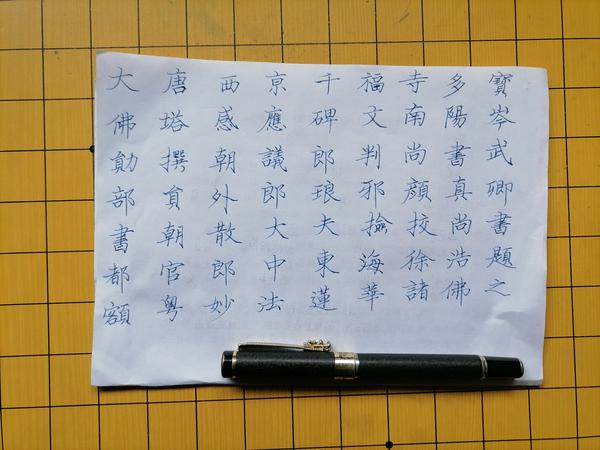 大唐西京千福寺多寶
佛塔感應碑文南陽岑
勛撰朝議郎判尚書武
部貟外郎琅邪顏真卿
書朝散大夫撿挍尚書
都官郎中東海徐浩題
額粵妙法蓮華諸佛之